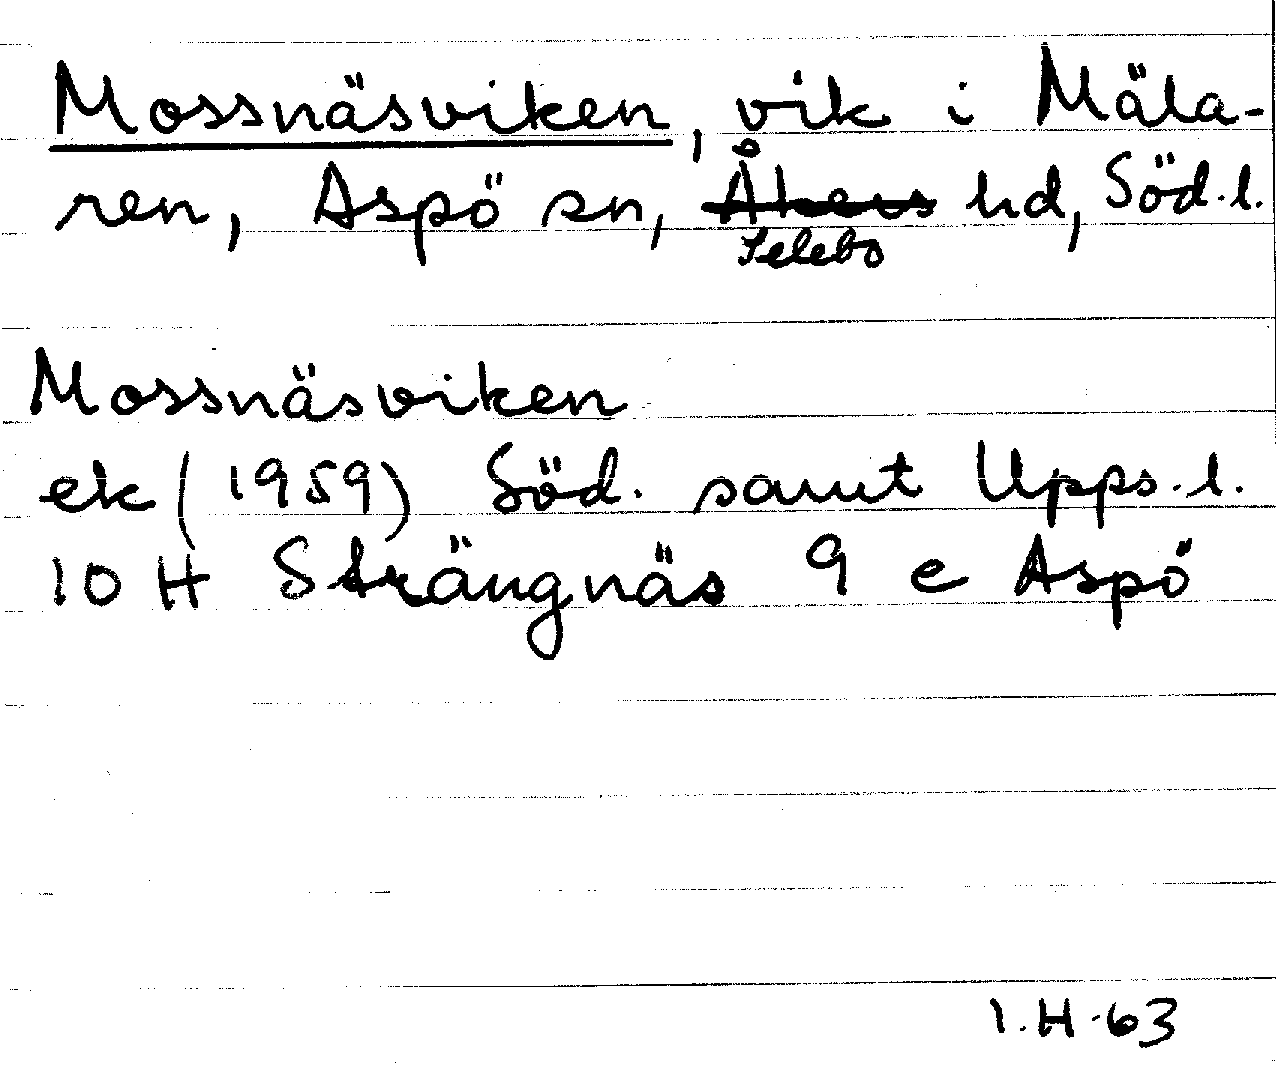 Mossnäsviken, vik i Mäla-
ren, Aspö sn, Åkers hd, Söd.l.
Selebo
Mossnäsviken
ek (1959) Söd. samt Upps.l.
10 H Strängnäs 9 e Aspö
I.H-63